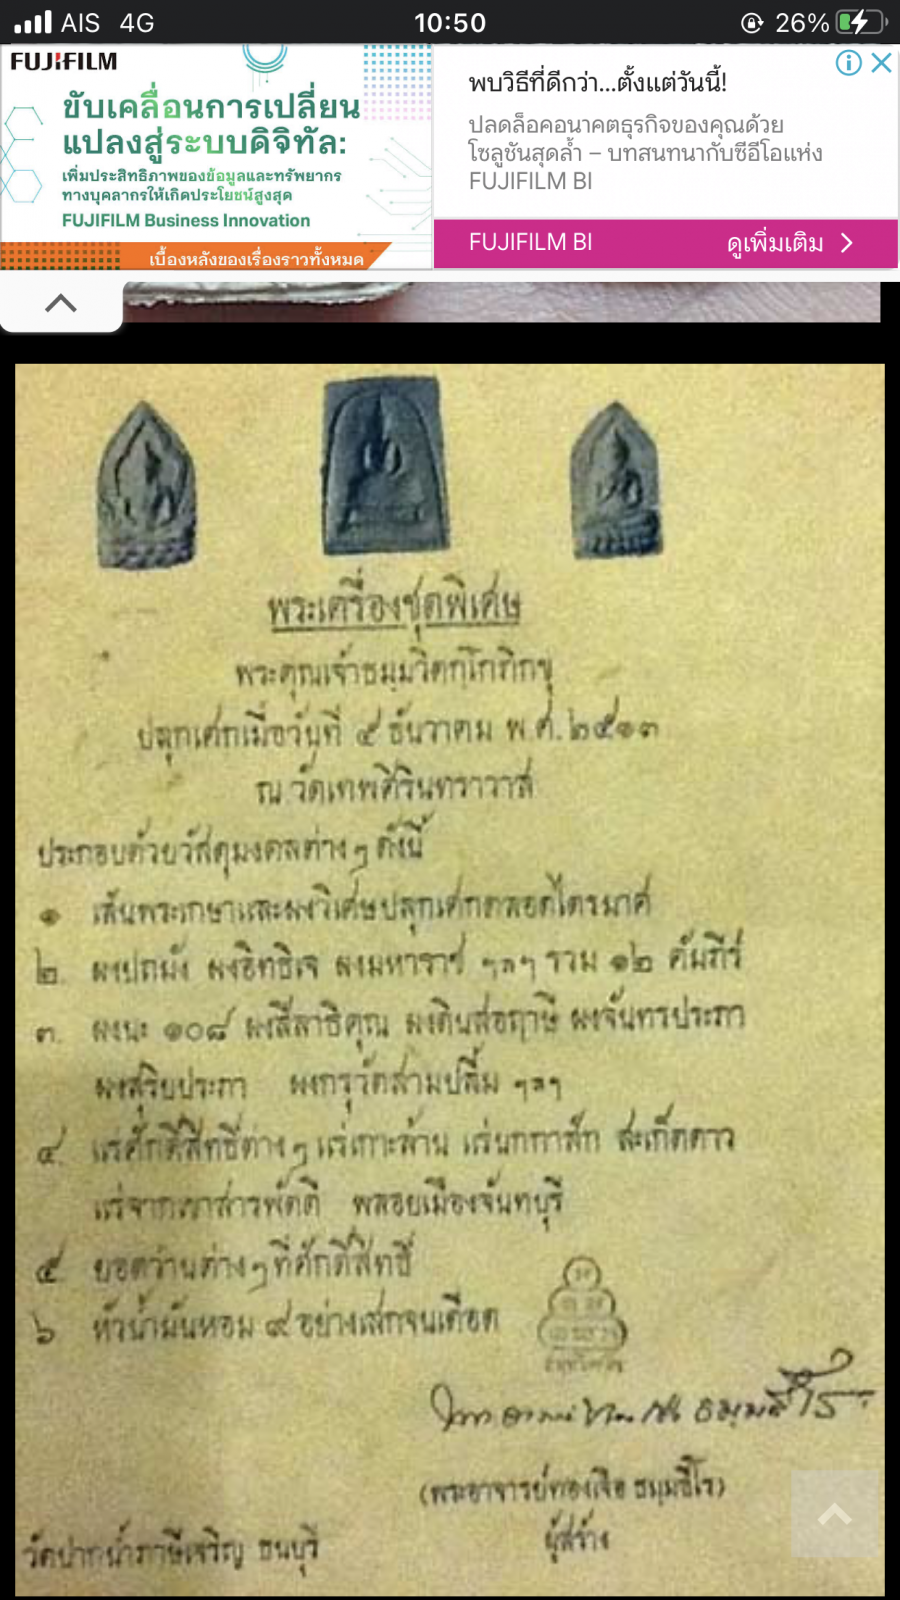 AIS 4G 10:50 26%
FUJIFILM
ขับเคลื่อนการเปลี่ยน
แปลงสู่ระบบดิจิทัล:
เพิ่มประสิทธิภาพของข้อมูลและทรัพยากร
ทางบุคลากรให้เกิดประโยชน์สูงสุด
FUJIFILM Business Innovation
เบื้องหลังของเรื่องราวทั้งหมด
พบวิธีที่ดีกว่า...ตั้งแต่วันนี้!
ปลดล็อคอนาคตธุรกิจของคุณด้วย
โซลูชันสุดล้ำ – บทสนทนากับซีอีโอแห่ง
FUJIFILM BI
FUJIFILM BI ดูเพิ่มเติม
พระเครื่องชุดพิเศษ
พระคุณเจ้าธมฺมวิตกฺโกภิกขุ
ปลุกเศกเมื่อวันที่ ๕ ธันวาคม พ.ศ.๒๕๑๓
ณ วัดเทพศิรินทราวาส
ประกอบด้วยวัสดุมงคลต่าง ๆ ดังนี้
๑ เส้นพระเกษาและผงวิเศษปลุกเศกตลอดไตรมาศ
๒. ผงปถมัง ผงอิทธิเจ ผงมหาราช ๆลๆ รวม ๑๒ คัมภีร์
๓. ผงนะ ๑๐๘ ผงสีสาธิคุณ ผงดินสอฤาษี ผงจันทรประภา
ผงสุริยประภา ผงกรุวัดสามปลื้ม ๆลๆ
๔. แร่ศักดิ์สิทธิ์ต่าง ๆ แร่เกาะล้าน แร่นกกาสัก สะเก็ดดาว
แร่จากเขาสารพัดดี พลอยเมืองจันทบุรี
๕ ยอดว่านต่าง ๆ ที่ศักดิ์สิทธิ์
๖ หัวน้ำมันหอม ๙ อย่างเสกจนเดือด
(พระอาจารย์ทองเจือ ธมฺมธีโร)
ผู้สร้าง
วัดปากน้ำภาษีเจริญ ธนบุรี